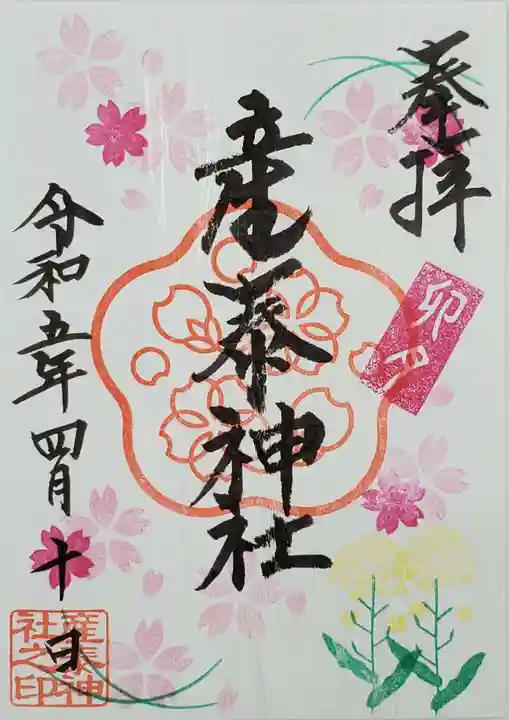 奉拝
卯月
産泰神社
令和五年四月十日
産泰神
社之印